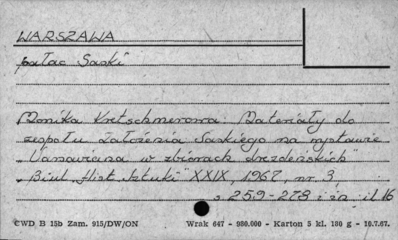 WARSZAWA
pałac Saski
Monika Kretschmerowa: Materiały do
zespołu Założenia Saskiego na wystawie
„Varsaviana w zbiorach drezdeńskich"
„Biul. Hist. Sztuki" XXIX, 1967, nr. 3
s. 259-278 i in. il 16
CWD B 15b Zam. 915/DW/ON Wrak 647 - 980.000 - Karton 5 kl. 180 g - 10.7.67.